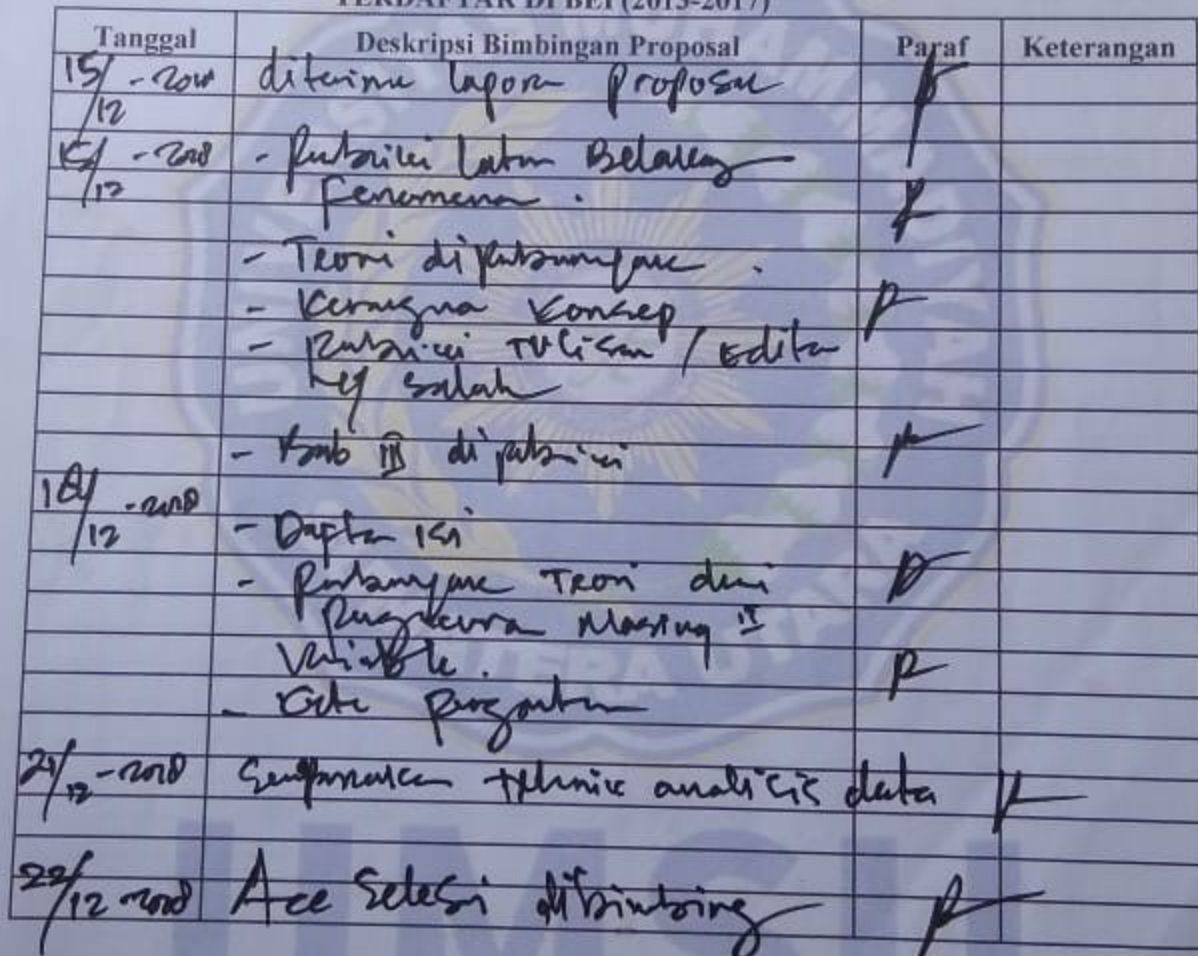 TERDAFTAR DI BEI (2013-2017)
Tanggal Deskripsi Bimbingan Proposal Paraf Keterangan
15/12 - 2018 diterima lapora proposal
15/12 - 2018 - Perbaiki Latar Belakang
fenomena .
- Teori di
- Kerangka Konsep
- Perbaiki Tulisan / Edita
yg salah
- Bab III diperbaiki
18/12 - 2018
- Daftar isi
- Teori dari
Masing"
Variable .
- Kata pengantar
21/12 - 2018 Sempurnakan tehnik analisis data
22/12 2018 Acc Selesai dibimbing
UTERA U
UMSU